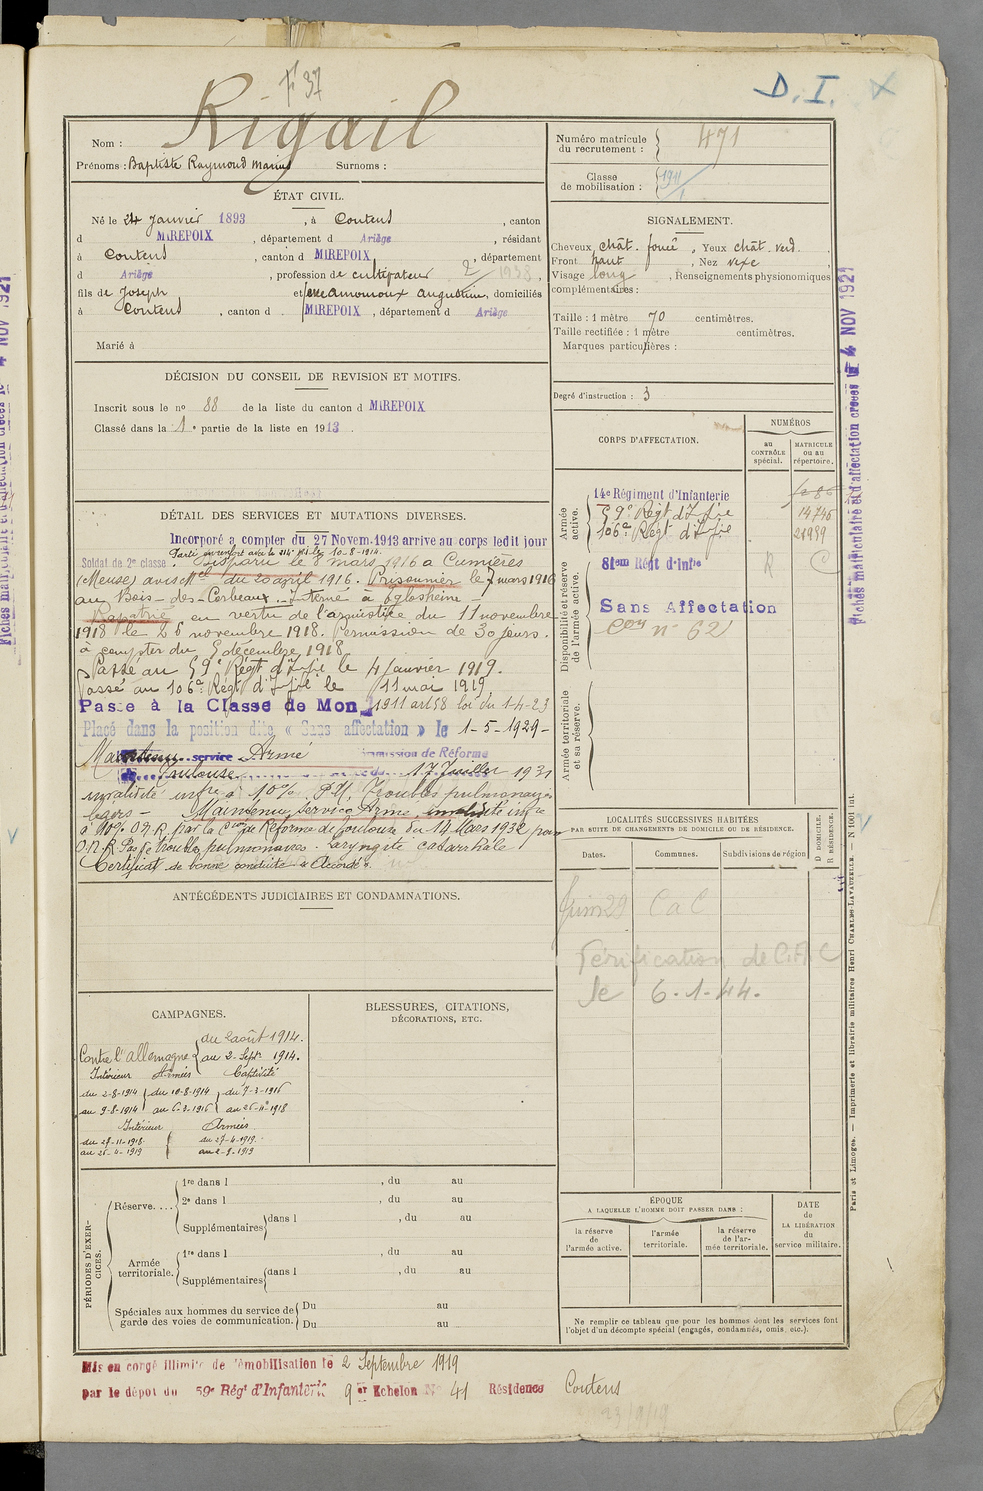 F° 37
D. I.
Rigail
Nom :
Prénoms : Baptiste Raymond Marius Surnoms :
Numéro matricule du recrutement : 471
Classe de mobilisation : 1911
ÉTAT CIVIL.
Né le 24 Janvier 1893, à Coutens, canton
d MIREPOIX, département d Ariège, résidant
à Coutens, canton d MIREPOIX, département
d Ariège, profession de cultivateur
fils de Joseph et de Amouroux Augustine, domiciliés
à Coutens, canton d MIREPOIX, département d Ariège
Marié à
SIGNALEMENT.
Cheveux chât. foncé, Yeux chât. verd.
Front haut, Nez vexe
Visage long, Renseignements physionomiques
complémentaires :
Taille : 1 mètre 70 centimètres.
Taille rectifiée : 1 mètre centimètres.
Marques particulières :
Degré d'instruction : 3
DÉCISION DU CONSEIL DE REVISION ET MOTIFS.
Inscrit sous le no 88 de la liste du canton d MIREPOIX
Classé dans la 1e partie de la liste en 1913.
CORPS D'AFFECTATION.
NUMÉROS
au CONTRÔLE spécial.
MATRICULE ou au répertoire.
Armée active.
14e Régiment d'Infanterie
59e Régt d'Inf ie 14746
106e Régt d'Inf ie 21939
Disponibilité et réserve de l'armée active.
81em Régt d'Infie R C
Sans Affectation
Con n° 62
Armée territoriale et sa réserve.
DÉTAIL DES SERVICES ET MUTATIONS DIVERSES.
Incorporé a compter du 27 Novem. 1913 arrive au corps ledit jour
Parti en renfort avec le 214e Rée le 10-8-1914.
Soldat de 2e classe. Disparu le 8 mars 1916 à Cumières
(Meuse) avis Mel du 20 april 1916. Prisonnier le 7 mars 1916
au Bois-des-Corbeaux. Interné à Eglosheim -
Rapatrié en vertu de l'armistice du 11 novembre
1918 le 26 novembre 1918. Permission de 30 jours.
à compter du 5 décembre 1918
Passé au 59e Régt d'Inf ie le 4 janvier 1919.
Passé au 106e Régt d'Inf ie le 11 mai 1919.
Passe à la Classe de Mon 1911 art 58 loi du 1-4-23
Placé dans la position dite « Sans affectation » le 1-5-1929-
Maintenu service Armé Commission de Réforme
de Toulouse du 17 Juillet 1931
invalidité infre à 10% P.M. Troubles pulmonaires
légers - Maintenu Service Armé, invalidité infre
à 10% O.N.R. par la Con de Réforme de Toulouse du 14 Mars 1932 pour
O.N.R. Pas de troubles pulmonaires. Laryngite catarrhale
Certificat de bonne conduite « Accordé ».
ANTÉCÉDENTS JUDICIAIRES ET CONDAMNATIONS.
LOCALITÉS SUCCESSIVES HABITÉES
PAR SUITE DE CHANGEMENTS DE DOMICILE OU DE RÉSIDENCE.
Dates. Communes. Subdivisions de région
D DOMICILE. R RÉSIDENCE.
Juin 29 C a C
Vérification de C.A.C
le 6-1-44.
CAMPAGNES.
Contre l'allemagne du 2 août 1914.
au 2 Septr 1914.
Intérieur Armées Captivité
du 2-8-1914 du 10-8-1914 du 7-3-1916
au 9-8-1914 au 6-3-1916 au 26-11-1918
Intérieur Armées
du 27-11-1918 du 27-4-1919.
au 26-4-1919 au 2-9-1919
BLESSURES, CITATIONS,
DÉCORATIONS, ETC.
PÉRIODES D'EXERCICES.
Réserve....
1re dans l , du au
2e dans l , du au
Supplémentaires dans l , du au
Armée territoriale.
1re dans l , du au
Supplémentaires dans l , du au
Spéciales aux hommes du service de garde des voies de communication.
Du au
Du au
ÉPOQUE
A LAQUELLE L'HOMME DOIT PASSER DANS :
la réserve de l'armée active.
l'armée territoriale.
la réserve de l'armée territoriale.
DATE de LA LIBÉRATION du service militaire.
Ne remplir ce tableau que pour les hommes dont les services font
l'objet d'un décompte spécial (engagés, condamnés, omis, etc.).
Mis en congé illimité de démobilisation le 2 Septembre 1919
par le dépôt du 59e Régt d'Infanterie 9 er Echelon No 41 Résidence Coutens
23/9/19
Fiches matriculaire et d'affectation créées le 4 NOV 1921
Paris et Limoges. — Imprimerie et librairie militaires Henri CHARLES-LAVAUZELLE. — N 1001 int.